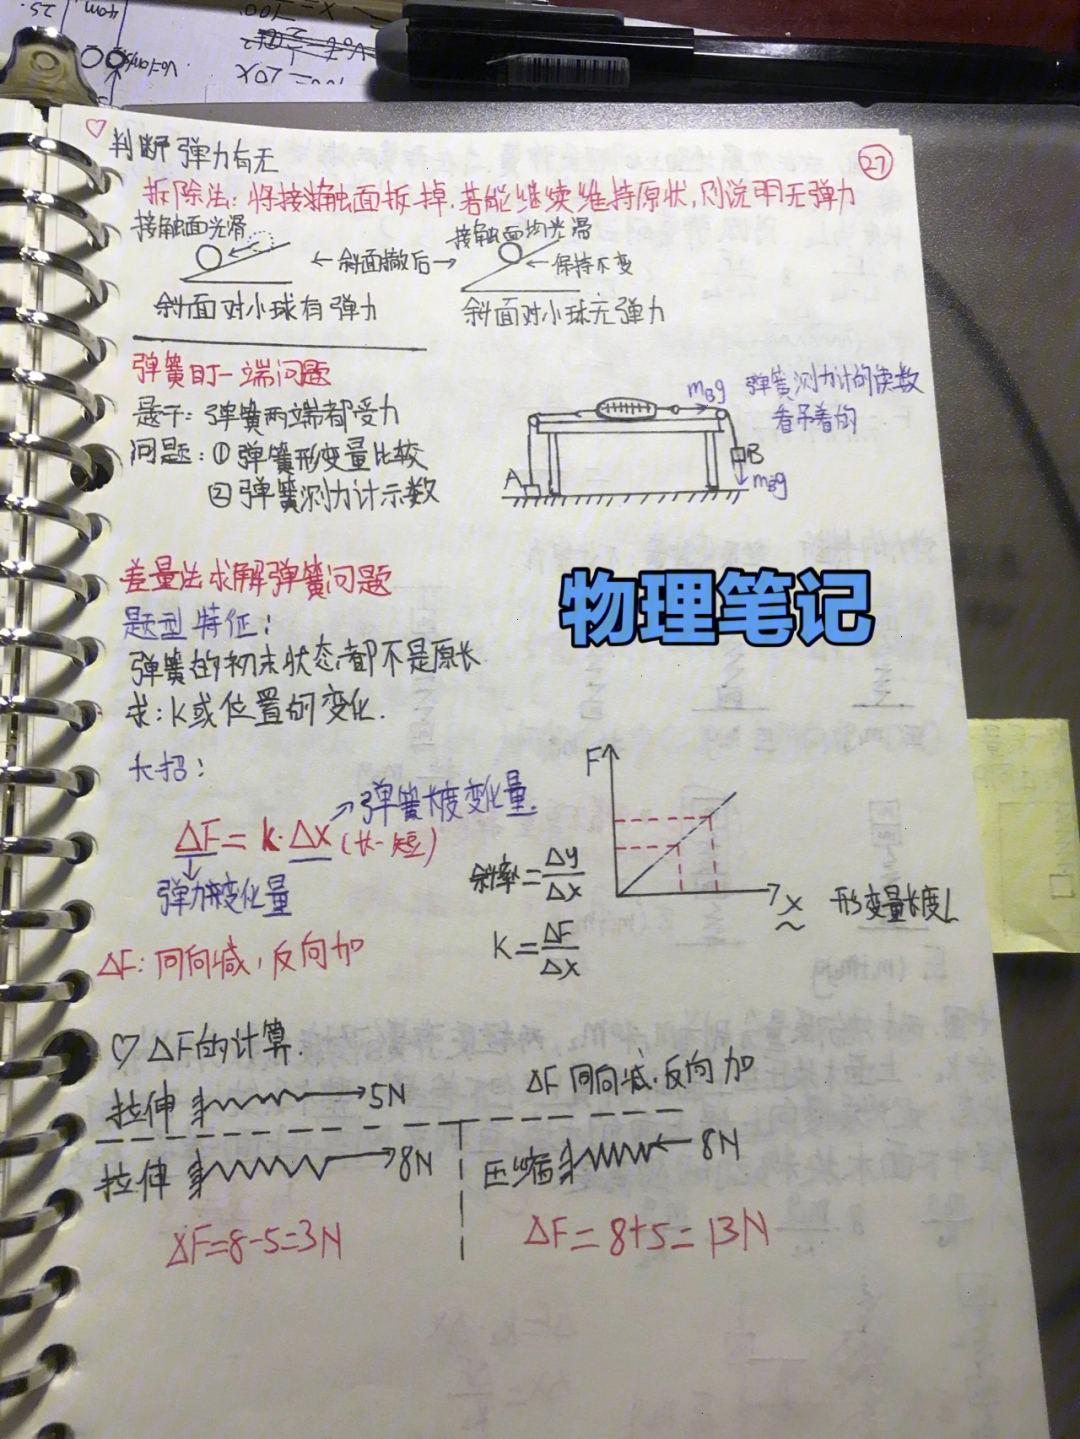 ♡ 判断弹力有无
27
拆除法：将接触面拆掉，若能继续维持原状，则说明无弹力
接触面光滑
接触面均光滑
←斜面撤后→
←保持不变
斜面对小球有弹力
斜面对小球无弹力
弹簧的一端问题
题干：弹簧两端都受力
问题：①弹簧形变量比较
②弹簧测力计示数
mBg
弹簧测力计的读数
看吊着的
A
B
mBg
差量法求解弹簧问题
题型特征：
弹簧的初末状态都不是原长
求：k或位置的变化.
大招：
物理笔记
→弹簧长度变化量.
ΔF=k·Δx(长-短)
弹力变化量
F
斜率=Δy/Δx
x
形变量长度L
k=ΔF/Δx
ΔF：同向减，反向加
♡ ΔF的计算.
拉伸 5N
ΔF同向减.反向加
拉伸 8N
压缩 8N
ΔF=8-5=3N
ΔF=8+5=13N